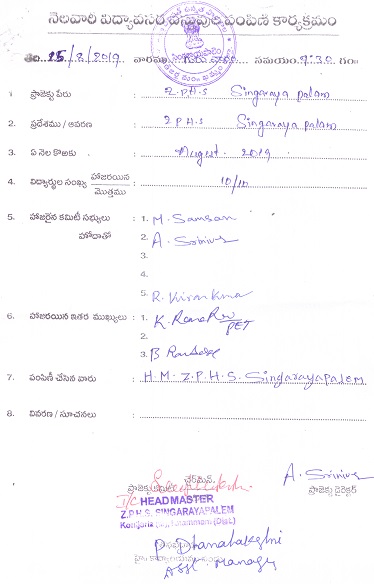 నెలవారి విద్యావసర వస్తువుల పంపిణీ కార్యక్రమం
తేది: 15/8/2019 వారము: గురువారం సమయం: 9:30 గం
1. ప్రాజెక్టు పేరు : Z.P.H.S Singaraya Palem
2. ప్రదేశము / ఆవరణ : Z P H S Singaraya Palem
3. ఏ నెల కొఱకు : August. 2019
4. విద్యార్థుల సంఖ్య హాజరయిన / మొత్తము : 10/10
5. హాజరైన కమిటీ సభ్యులు : 1. M. Samson
హోదాతో 2. A. Srinivas
3.
4.
5. R. Kiran Kumar
6. హాజరయిన ఇతర ముఖ్యులు : 1. K. Rama Rao
2. PET
3. B
7. పంపిణీ చేసిన వారు : H.M. Z.P.H.S. Singarayapalem
8. వివరణ / సూచనలు :
ఛైర్మన్
A. Srinivas
ప్రాజెక్టు డైరెక్టర్
I/c HEADMASTER
Z.P.H.S. SINGARAYAPALEM
P. Dhanalakshmi
Asst. Manager